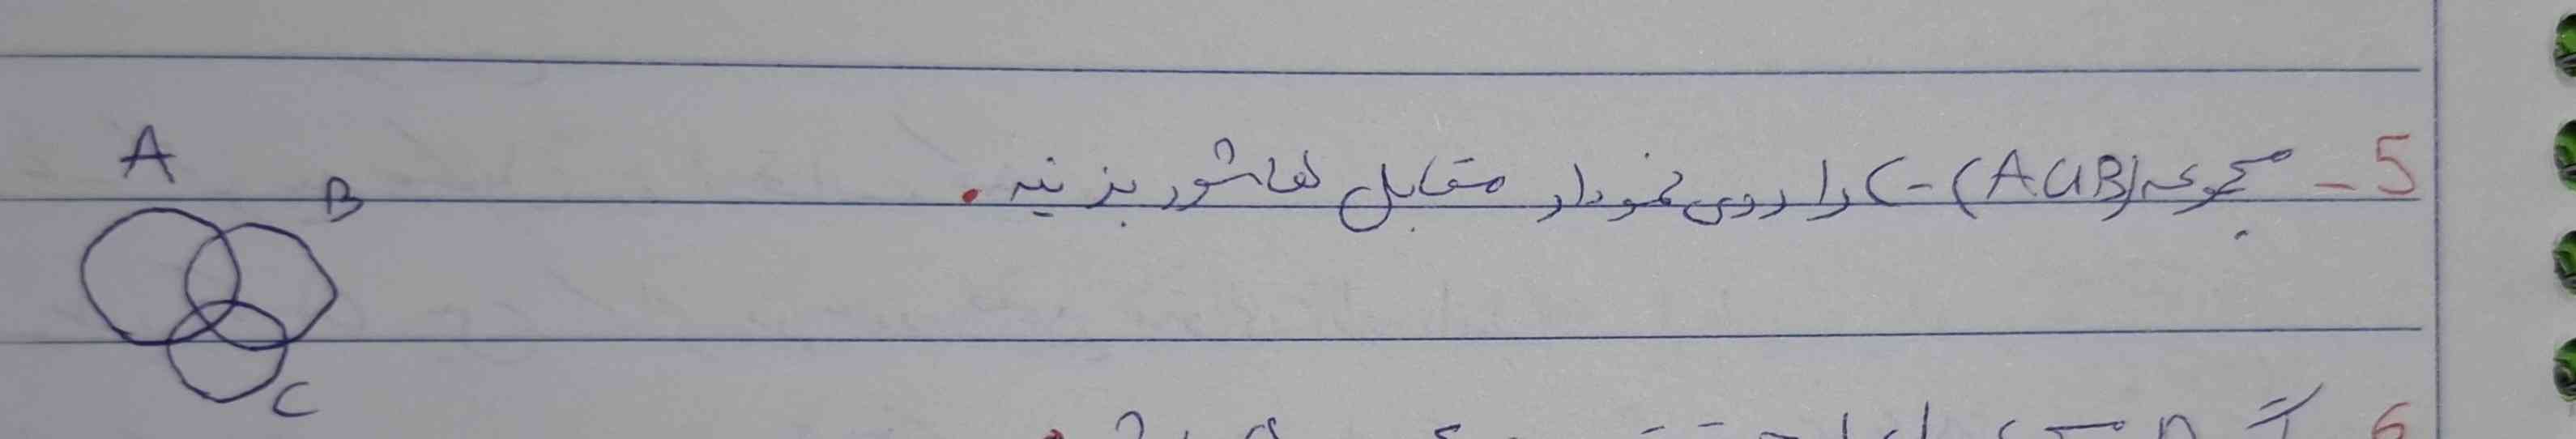 5 - مجموعه C - (A∪B) را روی نمودار مقابل هاشور بزنید.
A
B
C
6